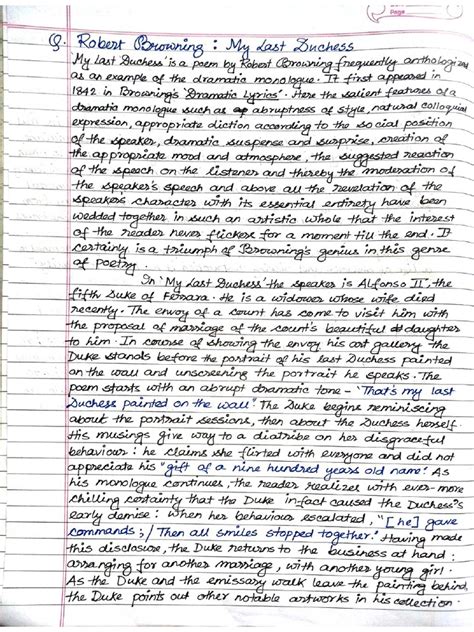 Page
Q. Robert Browning : My Last Duchess
'My Last Duchess' is a poem by Robert Browning frequently anthologized
as an example of the dramatic monologue. It first appeared in
1842 in Browning's 'Dramatic Lyrics'. Here the salient features of a
dramatic monologue such as abruptness of style, natural colloquial
expression, appropriate diction according to the social position
of the speaker, dramatic suspense and surprise, creation of
the appropriate mood and atmosphere, the suggested reaction
of the speech on the listener and thereby the moderation of
the speaker's speech and above all the revelation of the
speakers character with its essential entirety have been
wedded together in such an artistic whole that the interest
of the reader never flickers for a moment till the end. It
certainly is a triumph of Browning's genius in this genre
of poetry.
In 'My Last Duchess' the speaker is Alfonso II', the
fifth Duke of Ferrara. He is a widower whose wife died
recently. The envoy of a count has come to visit him with
the proposal of marriage of the count's beautiful daughter
to him. In course of showing the envoy his art gallery the
Duke stands before the portrait of his last Duchess painted
on the wall and unscreening the portrait he speaks. The
poem starts with an abrupt dramatic tone - "That's my last
Duchess painted on the wall". The Duke begins reminiscing
about the portrait sessions, then about the Duchess herself.
His musings give way to a diatribe on her disgraceful
behaviour : he claims she flirted with everyone and did not
appreciate his "gift of a nine hundred years old name". As
his monologue continues, the reader realizes with ever-more
chilling certainty that the Duke in-fact caused the Duchess's
early demise : when her behaviour escalated, "[he] gave
commands; / Then all smiles stopped together." Having made
this disclosure, the Duke returns to the business at hand :
arranging for another marriage, with another young girl.
As the Duke and the emissary walk leave the painting behind,
the Duke points out other notable artworks in his collection.